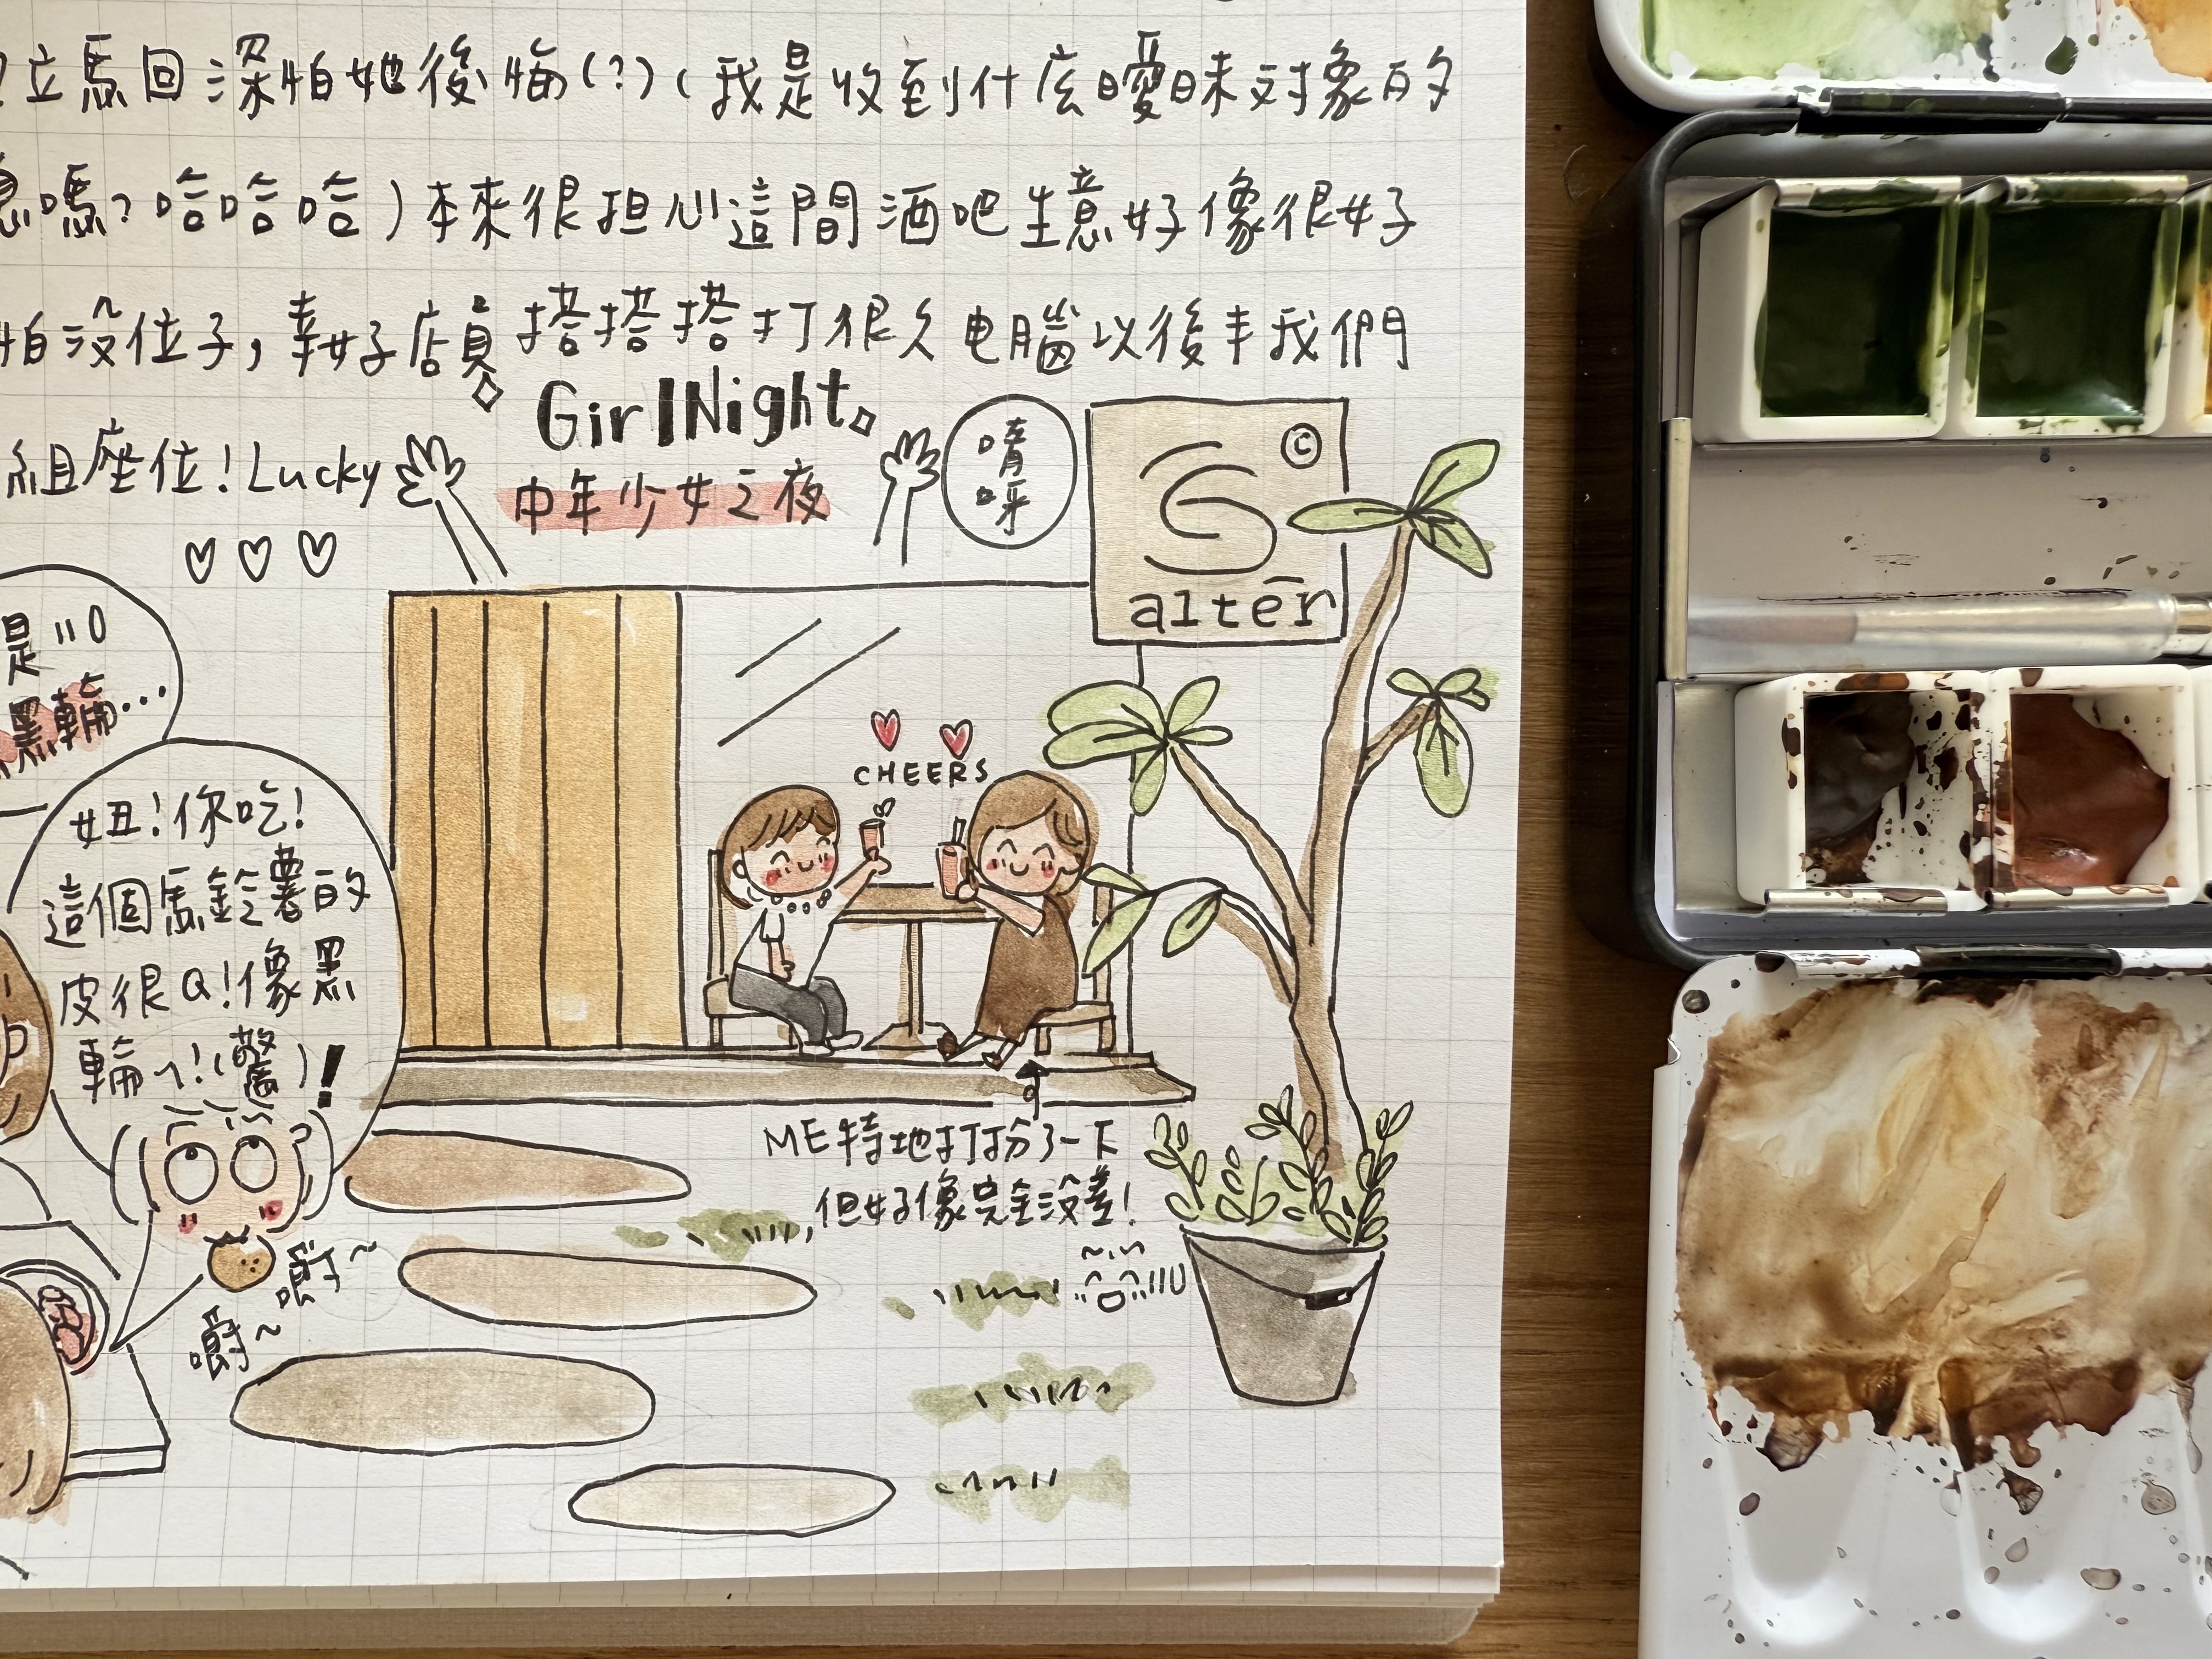 立馬回深怕她後悔(?)(我是收到什么曖昧对象的
息嗎?哈哈哈)本來很担心這間酒吧生意好像很好
怕沒位子,幸好店員搭搭搭打很久电腦以後丰我們
組座位!Lucky
Girl Night
中年少女之夜
唷呼
©
altēr
是
黑輪...
妞!你吃!
這個馬鈴薯的
皮很Q!像黑
輪ㄟ!(驚)!
CHEERS
ME特地打扮了一下
但好像完全沒差!
嚼~
嚼~